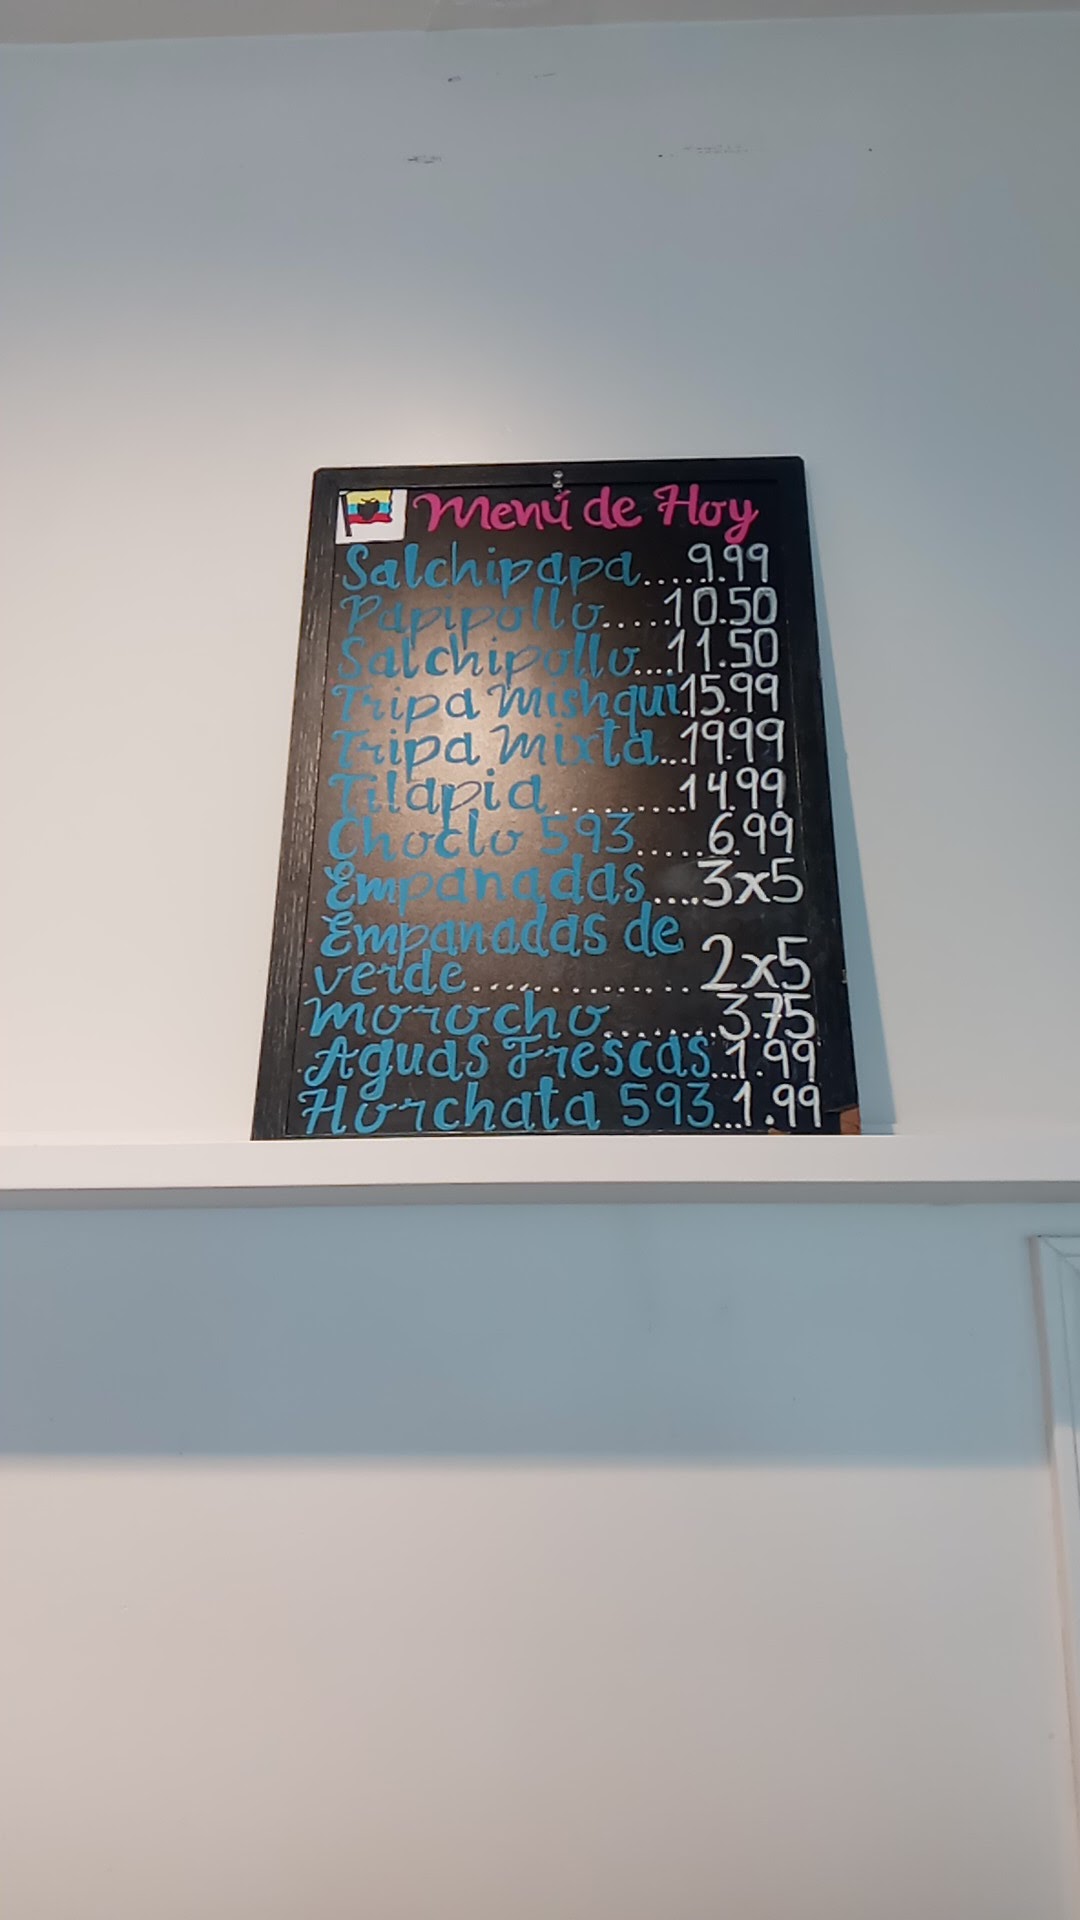 Menú de Hoy
Salchipapa....9.99
Papipollo.....10.50
Salchipollo...11.50
Tripa Mishqui.15.99
Tripa Mixta...19.99
Tilapia........14.99
Choclo 593.....6.99
Empanadas....3x5
Empanadas de
verde.............2x5
Morocho.......3.75
Aguas Frescas...1.99
Horchata 593...1.99